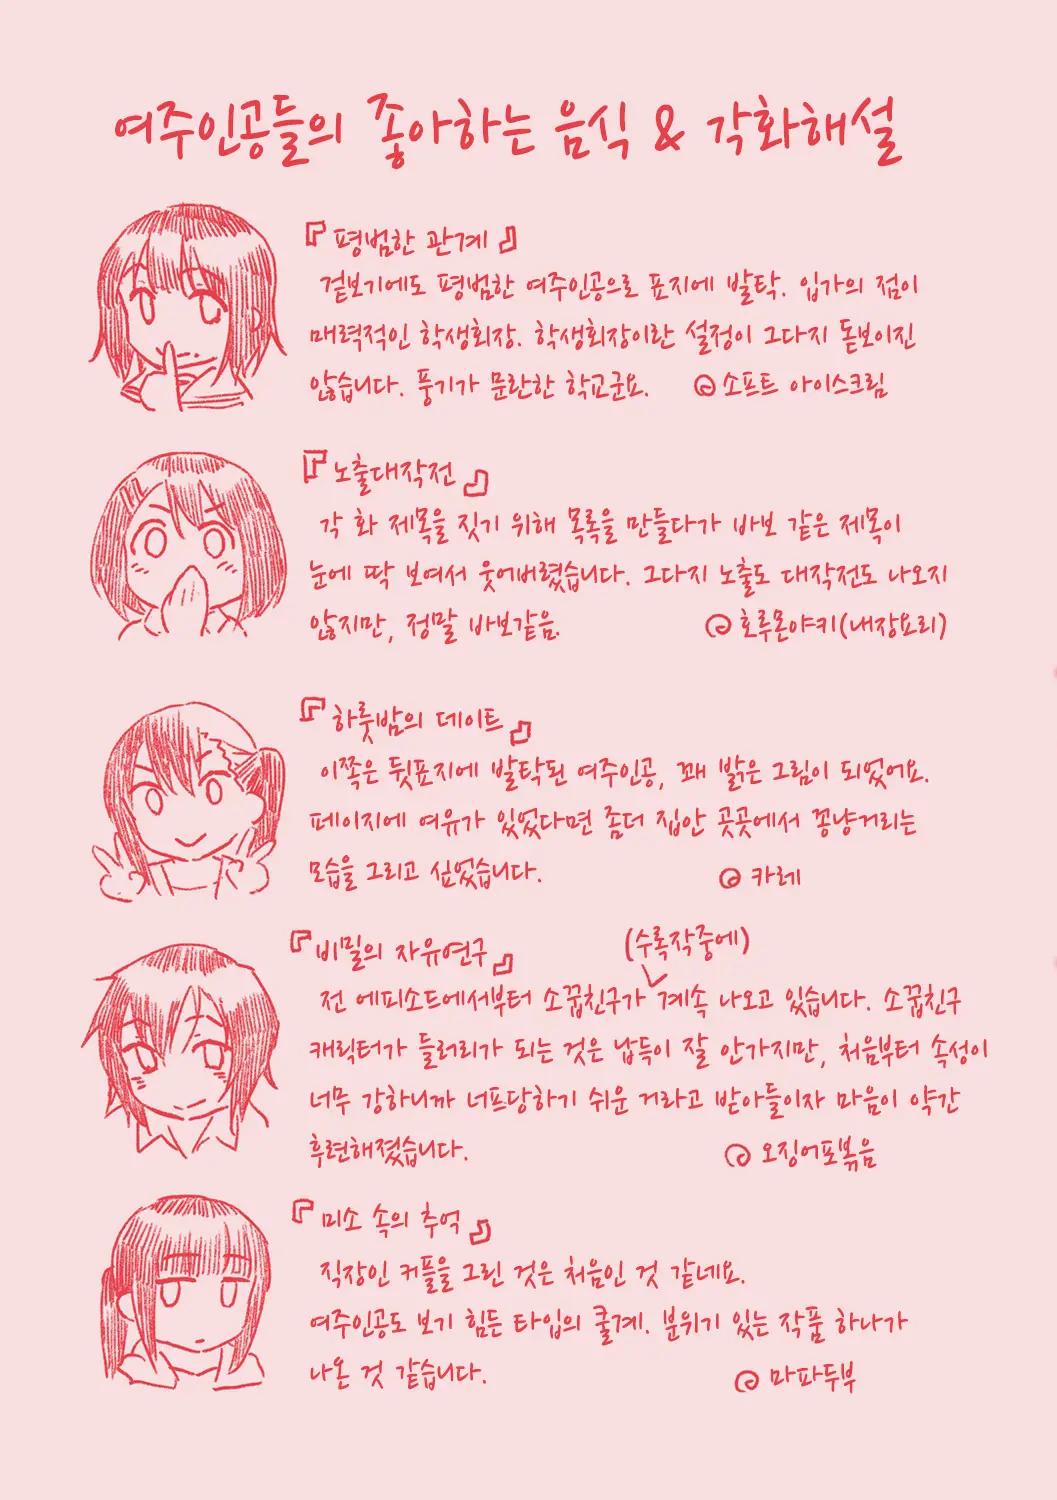 여주인공들의 좋아하는 음식 & 각화해설
『평범한 관계』
겉보기에도 평범한 여주인공으로 표지에 발탁. 입가의 점이
매력적인 학생회장. 학생회장이란 설정이 그다지 돋보이진
않습니다. 풍기가 문란한 학교군요. 소프트 아이스크림
『노출대작전』
각 화 제목을 짓기 위해 목록을 만들다가 바보 같은 제목이
눈에 딱 보여서 웃어버렸습니다. 그다지 노출도 대작전도 나오지
않지만, 정말 바보같음. 호루몬야키(내장요리)
『하룻밤의 데이트』
이쪽은 뒷표지에 발탁된 여주인공, 꽤 밝은 그림이 되었어요.
페이지에 여유가 있었다면 좀더 집안 곳곳에서 꽁냥거리는
모습을 그리고 싶었습니다. 카레
『비밀의 자유연구』
(수록작중에)
전 에피소드에서부터 소꿉친구가 계속 나오고 있습니다. 소꿉친구
캐릭터가 들러리가 되는 것은 납득이 잘 안가지만, 처음부터 속성이
너무 강하니까 너프당하기 쉬운 거라고 받아들이자 마음이 약간
후련해졌습니다. 오징어포볶음
『미소 속의 추억』
직장인 커플을 그린 것은 처음인 것 같네요.
여주인공도 보기 힘든 타입의 쿨계. 분위기 있는 작품 하나가
나온 것 같습니다. 마파두부